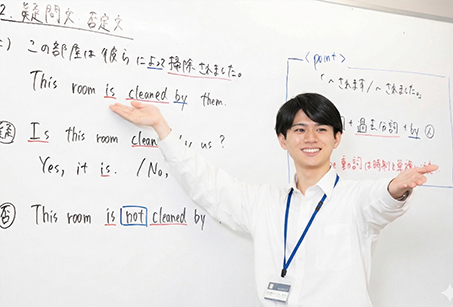 2. 疑問文・否定文
この部屋は彼らによって掃除されました。
This room is cleaned by them.
疑 Is this room clean us?
Yes, it is. /No,
否 This room is not cleaned by
<point>
「〜されます/〜されました。」
+ 過去分詞 + by 人
動詞は時制と